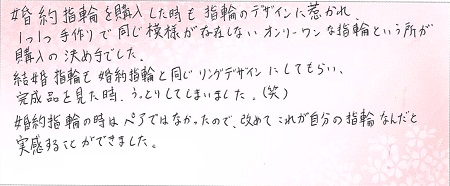 婚約指輪を購入した時も指輪のデザインに惹かれ、
1つ1つ手作りで同じ模様が存在しないオンリーワンな指輪という所が
購入の決め手でした。
結婚指輪も婚約指輪と同じリングデザインにしてもらい、
完成品を見た時、うっとりしてしまいました。(笑)
婚約指輪の時はペアではなかったので、改めてこれが自分の指輪なんだと
実感することができました。